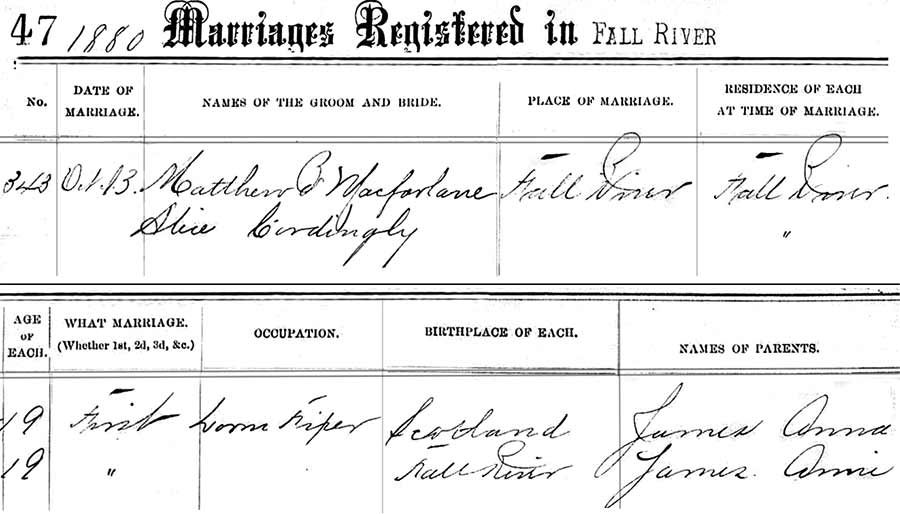 47 1880 Marriages Registered in FALL RIVER
No.
DATE OF
MARRIAGE.
NAMES OF THE GROOM AND BRIDE.
PLACE OF MARRIAGE.
RESIDENCE OF EACH
AT TIME OF MARRIAGE.
343 Oct. 13. Matthew Macfarlane Fall River Fall River.
Alice Cordingly "
AGE
OF
EACH.
WHAT MARRIAGE.
(Whether 1st, 2d, 3d, &c.)
OCCUPATION.
BIRTHPLACE OF EACH.
NAMES OF PARENTS.
19 First Loom Fixer Scotland James Anna
19 " Fall River James. Annie